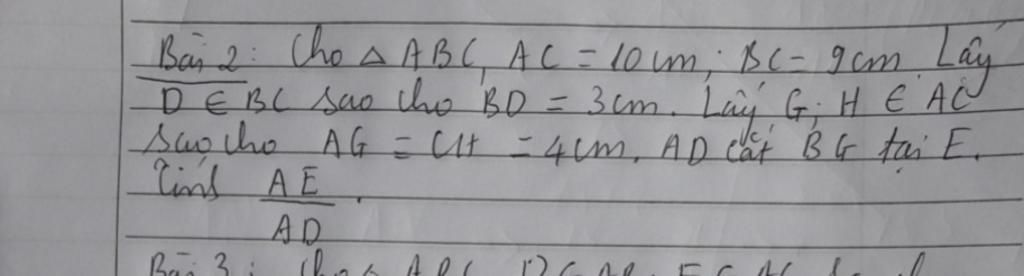 Bài 2: Cho △ ABC, AC = 10 cm; BC = 9cm Lấy
D ∈ BC sao cho BD = 3cm. Lấy G; H ∈ AC
sao cho AG = CH = 4cm. AD cắt BG tại E.
Tính AE
AD
Bài 3: Cho △ ABC, D ∈ AB, E ∈ AC